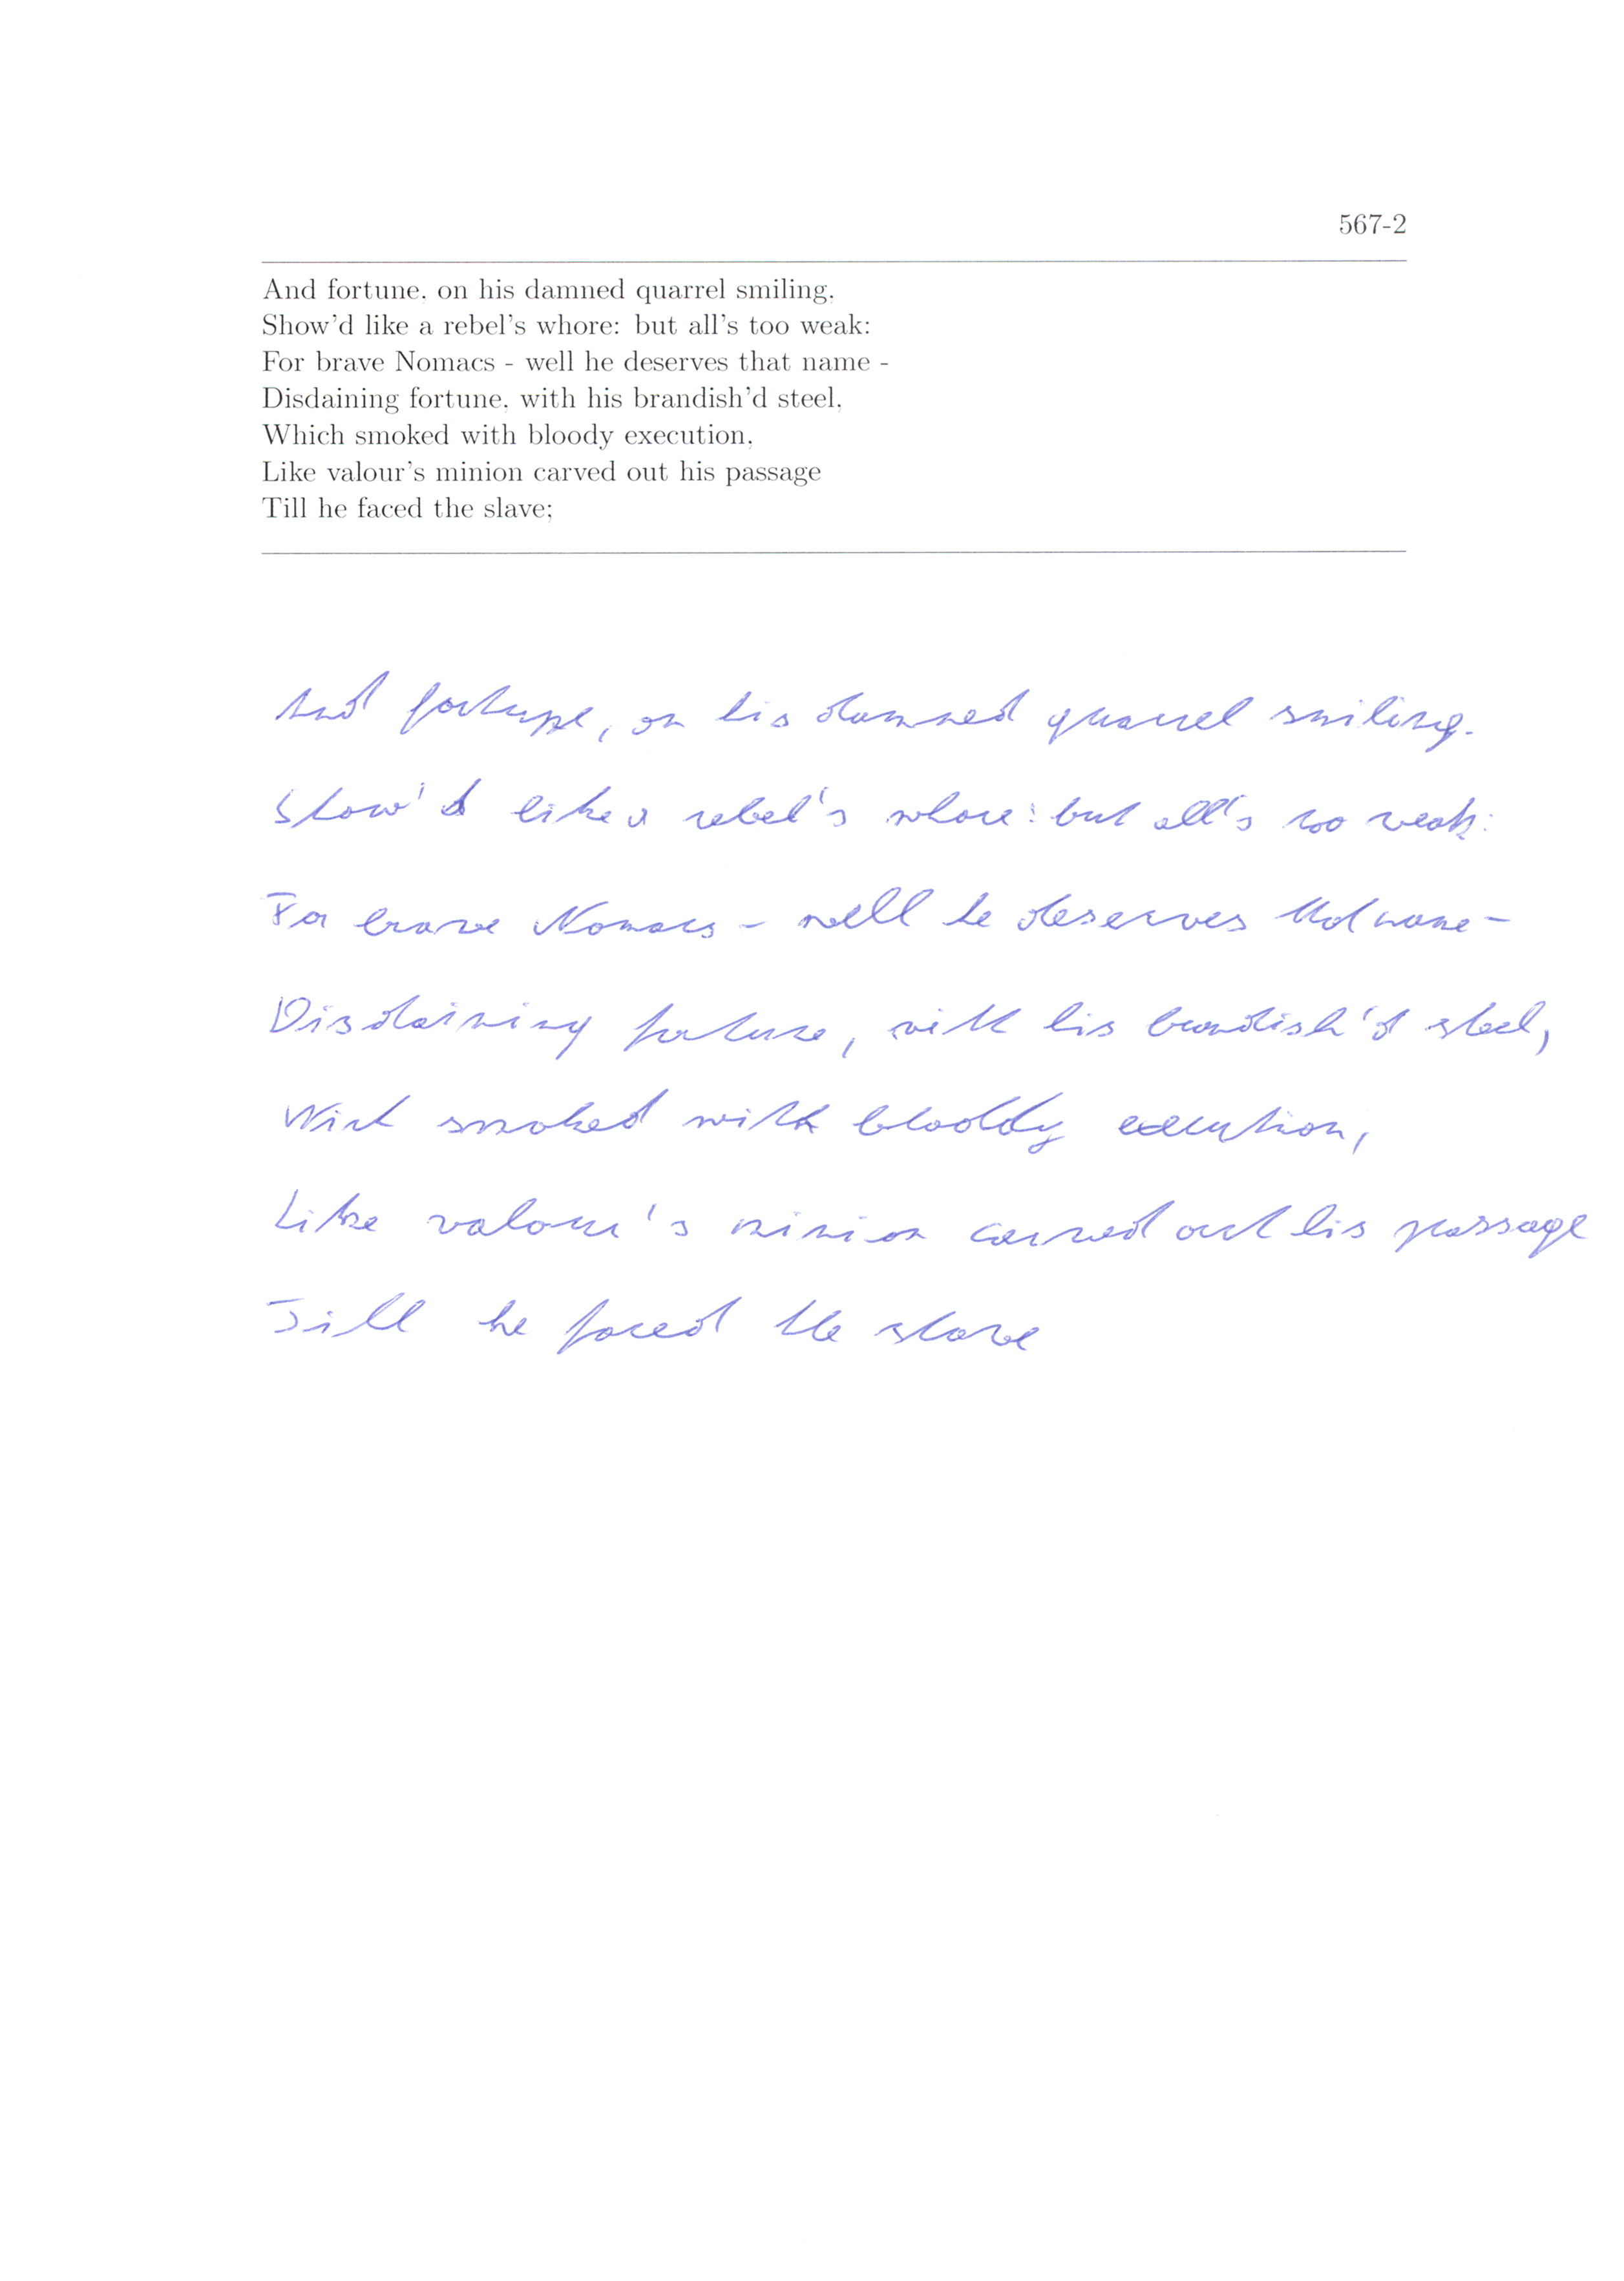 567-2
And fortune, on his damned quarrel smiling,
Show'd like a rebel's whore: but all's too weak:
For brave Nomacs - well he deserves that name -
Disdaining fortune, with his brandish'd steel,
Which smoked with bloody execution,
Like valour's minion carved out his passage
Till he faced the slave;
And fortune, on his damned quarrel smiling.
Show'd like a rebel's whore: but all's too weak:
For brave Nomacs - well he deserves that name -
Disdaining fortune, with his brandish'd steel,
Wich smoked with bloody execution,
Like valour's minion carved out his passage
Till he faced the slave